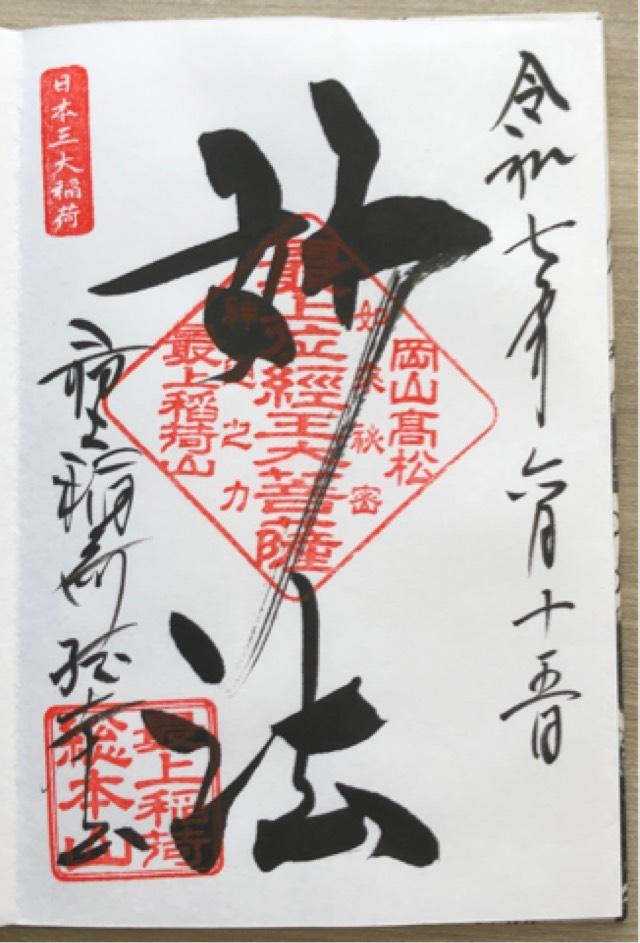 令和七年六月十五日
岡山高松
如来秘密
妙法
最上位經王大菩薩
神通之力
最上稲荷山
日本三大稲荷
最上稲荷総本山
最上稲荷
総本山